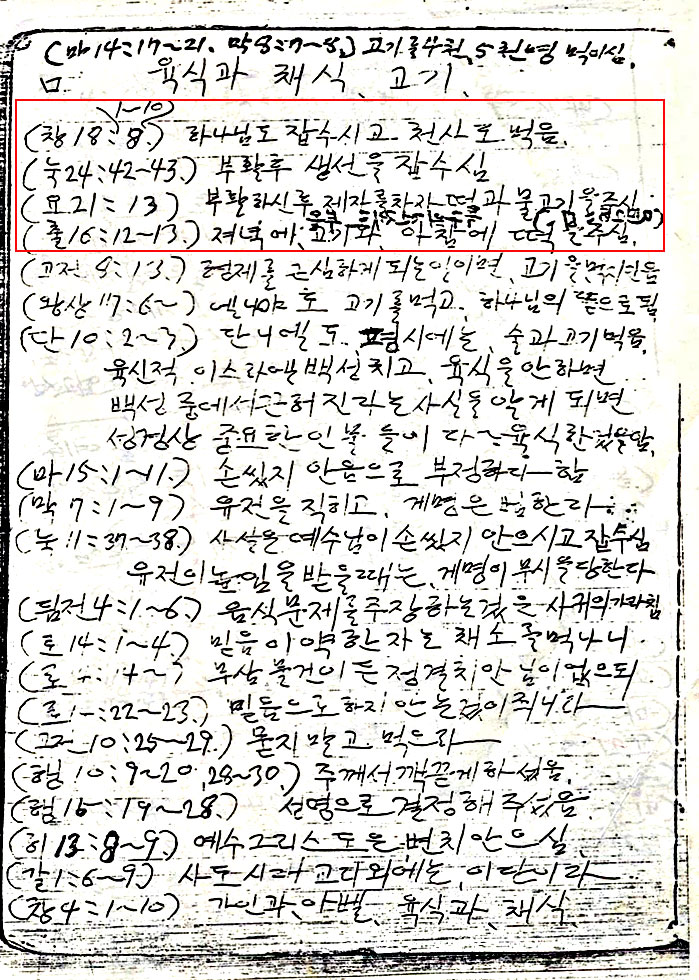 (마 14:17~21. 막 8:7~8.) 고기를 4천, 5천명 먹이심.
ㅁ 육식과 채식, 고기.
1~10
(창 18:8.) 하나님도 잡수시고 천사도 먹음.
(눅 24:42~43.) 부활후 생선을 잡수심
(요 21:13) 부활하신후 제자를 찾자 떡과 물고기을 주심
(출 16:12~13.) 저녁에, 고기와, 아침에 떡을 주심.
(고전 8:13.) 형제를 근심하게 되는일이면, 고기을
(왕상 17:6~) 엘니야도 고기를 먹고, 하나님의 뜻으로 됨
(단 10:2~3.) 단니엘도, 평시에는, 술과 고기 먹음.
육신적 이스라엘 백성치고, 육식을 안하면
백성 중에서 끈허진라는 사실을 알게 되면
성경상 중요한 인물들이 다
(마 15:1~11.) 손씼지 안음으로 부정하다 함
(막 7:1~9) 유전을 직히고, 게명은 범한라
(눅 11:37~38.) 사실은 예수님이 손씼지 안으시고 잡수심
유전의 높임을 받을때는, 게명이 무시을 당한다
(딤전 4:1~6.) 음식문제를 주장하는겄은 사귀의 가라침
(로 14:1~4.) 믿음이 약한자는 채소를 먹나니
무삼 물건이든 정결치안님이 없으되
:22~23.) 믿음으로 하지 안는겄이 죄니라
(고전 10:25~29.) 묻지말고 먹으라
(행 10:9~20, 28~30.) 주께서 깩끝게 하셨음.
(행 15:19~28.) 성령으로 결정해 주셨음
(히 13:8~9.) 예수그리스도은 변치 안으심
(갈 1:6~9) 사도시대 교리외에는, 이단이라
(창 4:1~10) 가인과, 아벨, 육식과, 채식.